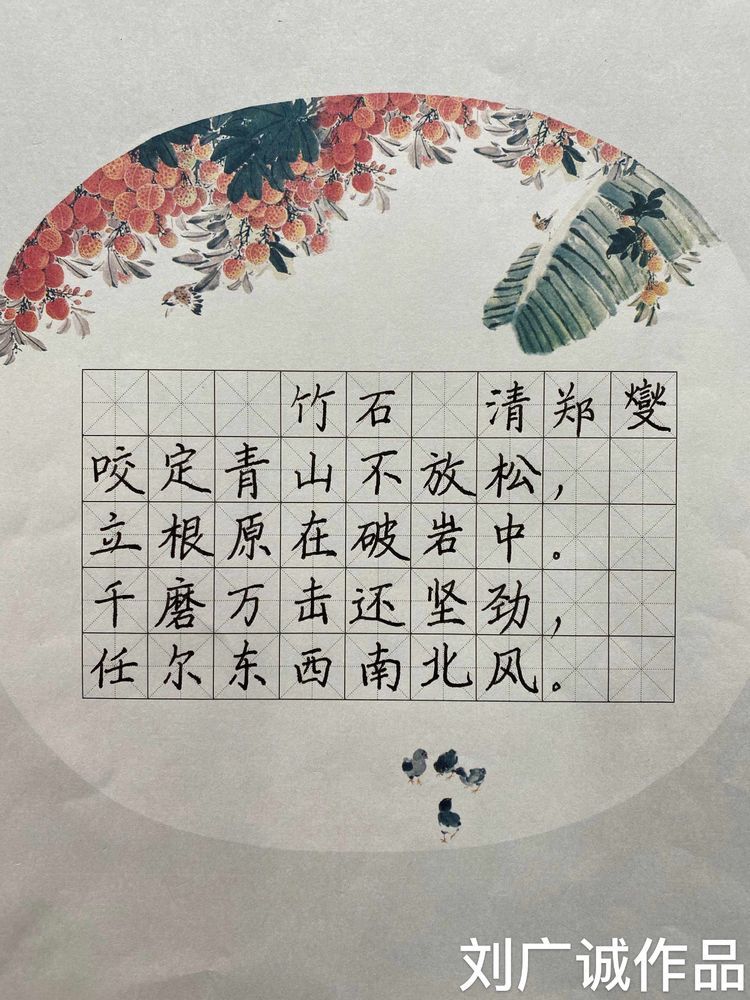 竹石 清郑燮
咬定青山不放松，
立根原在破岩中。
千磨万击还坚劲，
任尔东西南北风。
刘广诚作品